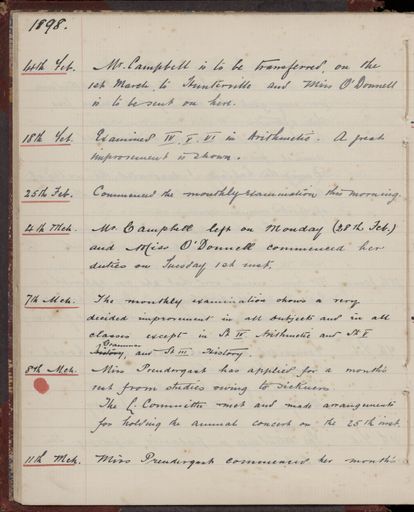 1898.
4th Feb. Mr. Campbell is to be transferred, on the
1st March to Hunterville and Miss O'Donnell
is to be sent on here.
18th Feb. Examined IV. V. VI in Arithmetic. A great
improvement is shown.
25th Feb. Commenced the monthly examination this morning.
4th Mch. Mr. Campbell left on Monday (28th Feb.)
and Miss O'Donnell commenced her
duties on Tuesday 1st inst.
7th Mch. The monthly examination shows a very
decided improvement in all subjects and in all
classes except in St IV Arithmetic and St V
Grammar
history, and St III History.
8th Mch. Miss Prendergast has applied for a month's
rest from studies owing to sickness
The Committee met and made arrangements
for holding the annual concert on the 25th inst.
11th Mch. Miss Prendergast commenced her month's